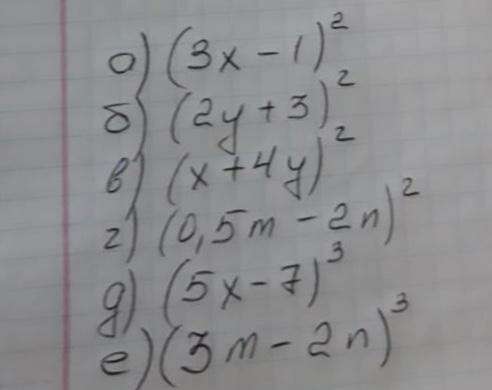 а) (3x - 1)²
б) (2y + 3)²
в) (x + 4y)²
г) (0,5m - 2n)²
д) (5x - 7)³
е) (3m - 2n)³